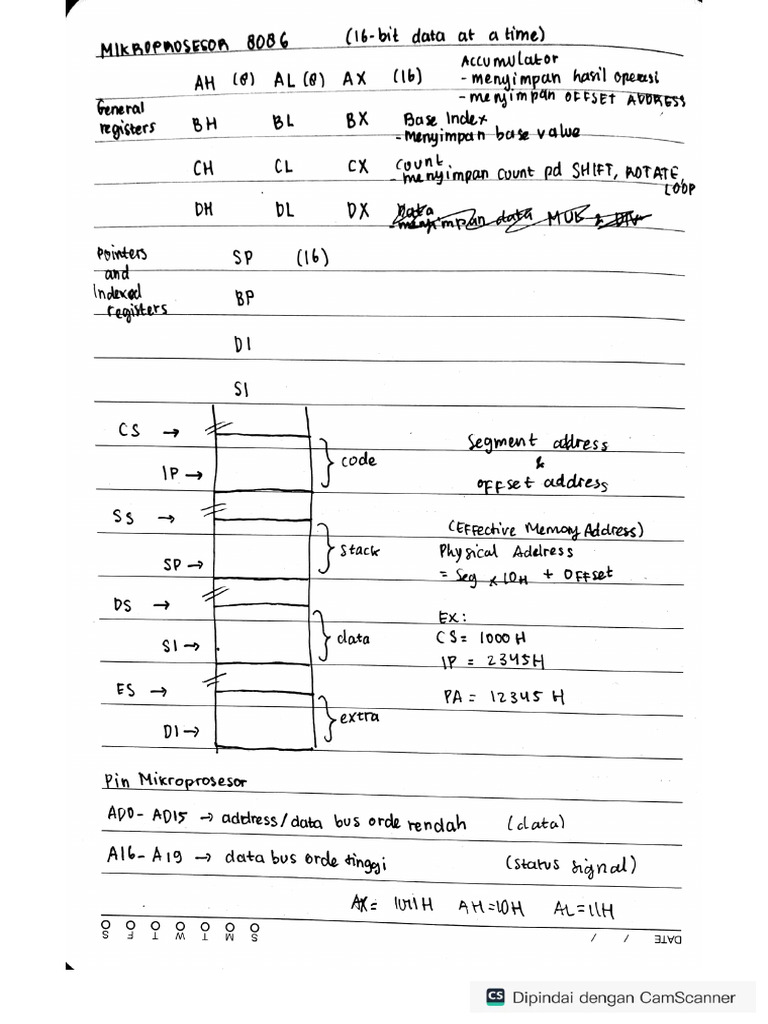 MIKROPROSESOR 8086 (16-bit data at a time)
Accumulator
AH (8) AL (8) AX (16) - menyimpan hasil operasi
- menyimpan OFFSET ADDRESS
General
registers BH BL BX Base Index
- Menyimpan base value
CH CL CX Count
- menyimpan count pd SHIFT, ROTATE,
LOOP
DH DL DX Data
- menyimpan data MUL & DIV
Pointers SP (16)
and
Indexed BP
registers
DI
SI
CS →
code
IP →
Segment address
&
offset address
SS →
stack
SP →
(Effective Memory Address)
Physical Address
= Seg x 10H + Offset
DS →
data
SI →
Ex:
CS = 1000 H
IP = 2345H
ES →
PA = 12345 H
extra
DI →
Pin Mikroprosesor
AD0 - AD15 → address/data bus orde rendah (data)
A16 - A19 → data bus orde tinggi (status signal)
AX = 1011H AH=10H AL=11H
S F T W T M S
DATE / /
CS Dipindai dengan CamScanner